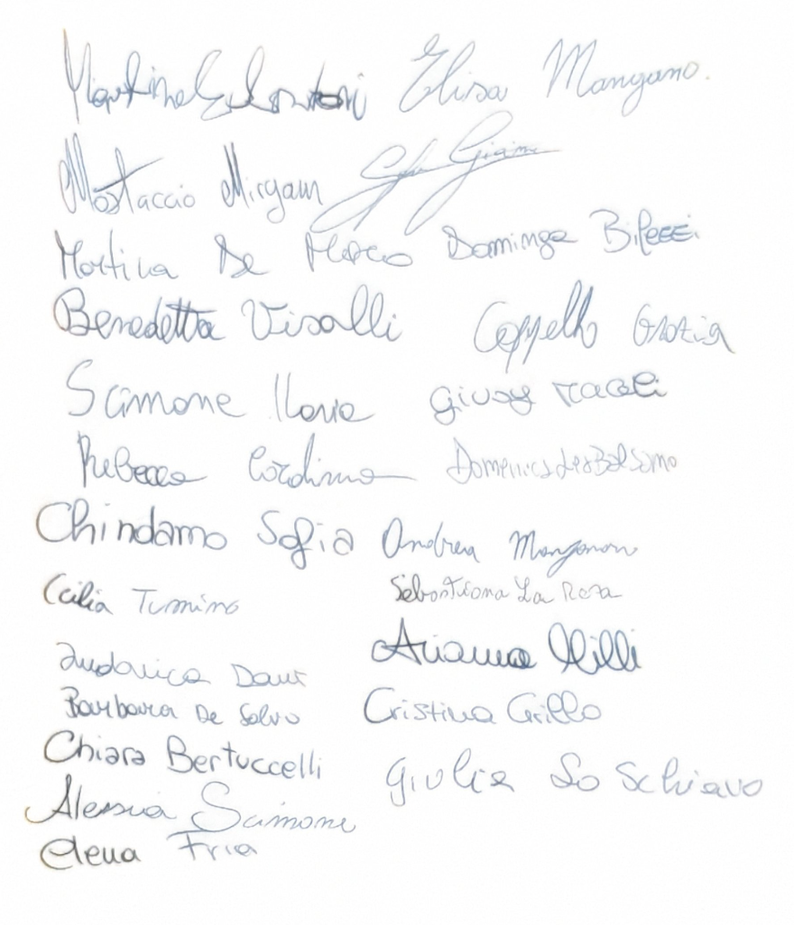 Martina Elisa Mangano.
Mostaccio Miryam
Martina De Marco Dominga
Benedetta Visalli Coppello Grazia
Scimone Ilaria Giusy
Rebecca Cordima Domenica
Chindamo Sofia Andrea
Cecilia Tumino Sebastiana La Rosa
Ludovica Arianna Milli
Barbara De Salvo Cristina Grillo
Chiara Bertuccelli Giulia Lo Schiavo
Alessia Scimone
Elena Fria